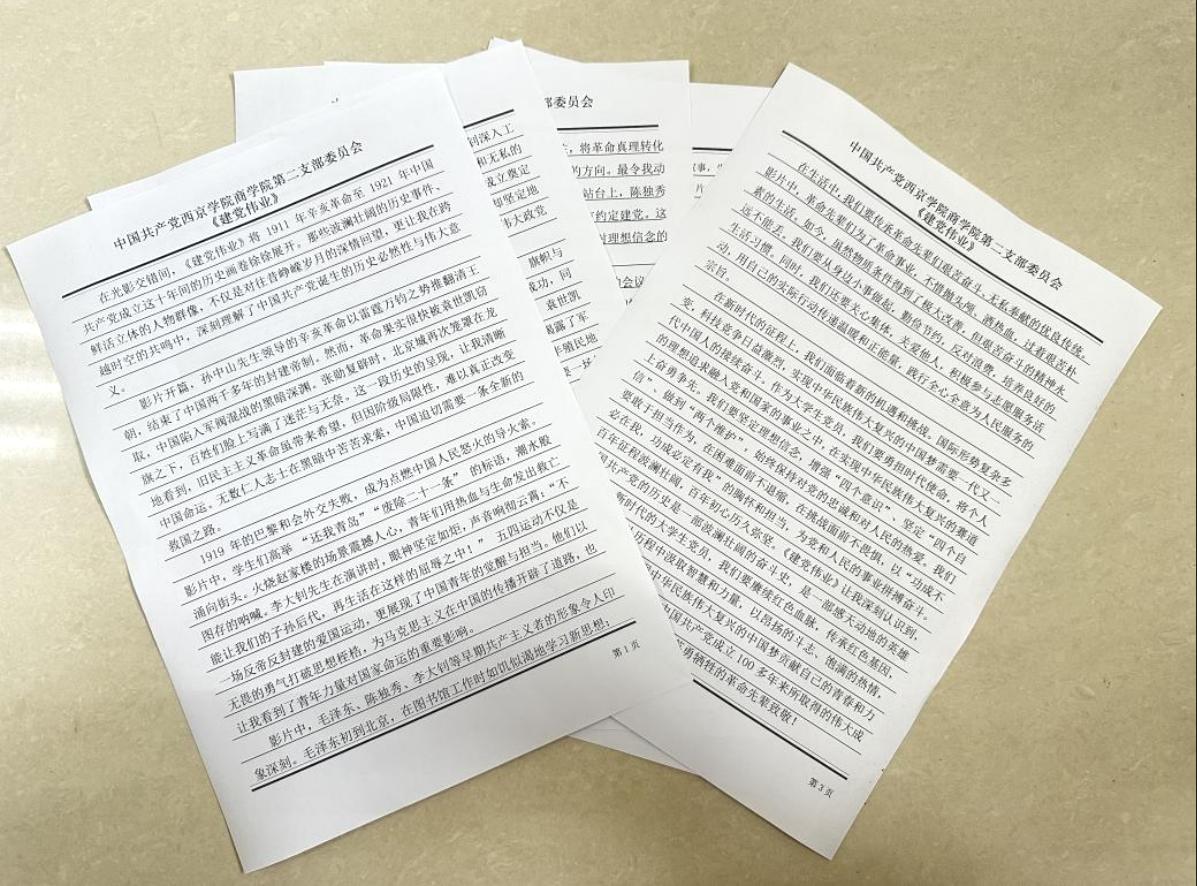 中国共产党西京学院商学院第二支部委员会
《建党伟业》
在光影交错间，《建党伟业》将 1911 年辛亥革命至 1921 年中国
共产党成立这十年间的历史画卷徐徐展开。那些波澜壮阔的历史事件、
鲜活立体的人物群像，不仅是对往昔峥嵘岁月的深情回望，更让我在跨
越时空的共鸣中，深刻理解了中国共产党诞生的历史必然性与伟大意
义。
影片开篇，孙中山先生领导的辛亥革命以雷霆万钧之势推翻清王
朝，结束了中国两千多年的封建帝制。然而，革命果实很快被袁世凯窃
取，中国陷入军阀混战的黑暗深渊。张勋复辟时，北京城再次笼罩在龙
旗之下，百姓们脸上写满了迷茫与无奈。这一段历史的呈现，让我清晰
地看到，旧民主主义革命虽带来希望，但因阶级局限性，难以真正改变
中国命运。无数仁人志士在黑暗中苦苦求索，中国迫切需要一条全新的
救国之路。
1919 年的巴黎和会外交失败，成为点燃中国人民怒火的导火索。
影片中，学生们高举 “还我青岛” “废除二十一条” 的标语，潮水般
涌向街头。火烧赵家楼的场景震撼人心，青年们用热血与生命发出救亡
图存的呐喊。李大钊先生在演讲时，眼神坚定如炬，声音响彻云霄，“不
能让我们的子孙后代，再生活在这样的屈辱之中！” 五四运动不仅是
一场反帝反封建的爱国运动，更展现了中国青年的觉醒与担当。他们以
无畏的勇气打破思想桎梏，为马克思主义在中国的传播开辟了道路，也
让我看到了青年力量对国家命运的重要影响。
影片中，毛泽东、陈独秀、李大钊等早期共产主义者的形象令人印
象深刻。毛泽东初到北京，在图书馆工作时如饥似渴地学习新思想；
第 1 页
到深入工
和无私的
成立奠定
却坚定地
伟大政党
旗帜与
成功，同
袁世凯
揭露了军
半殖民地
部委员会
，将革命真理转化
的方向。最令我动
站台上，陈独秀
约定建党。这
对理想信念的
中国共产党西京学院商学院第二支部委员会
《建党伟业》
在生活中，我们要传承革命先辈们艰苦奋斗、无私奉献的优良传统。
影片中，革命先辈们为了革命事业，不惜抛头颅、洒热血，过着艰苦朴
素的生活。如今，虽然物质条件得到了极大改善，但艰苦奋斗的精神永
远不能丢。我们要从身边小事做起，勤俭节约，反对浪费，培养良好的
生活习惯。同时，我们还要关心集体，关爱他人，积极参与志愿服务活
动，用自己的实际行动传递温暖和正能量，践行全心全意为人民服务的
宗旨。
在新时代的征程上，我们面临着新的机遇和挑战。国际形势复杂多
变，科技竞争日益激烈，实现中华民族伟大复兴的中国梦需要一代又一
代中国人的接续奋斗。作为大学生党员，我们要勇担时代使命，将个人
的理想追求融入党和国家的事业之中，在实现中华民族伟大复兴的赛道
上奋勇争先。我们要坚定理想信念，增强“四个意识”、坚定“四个自
信”、做到“两个维护”，始终保持对党的忠诚和对人民的热爱。我们
要敢于担当作为，在困难面前不退缩，在挑战面前不畏惧，以“功成不
必在我，功成必定有我”的胸怀和担当，为党和人民的事业拼搏奋斗。
百年征程波澜壮阔，百年初心历久弥坚。《建党伟业》让我深刻认识到，
国共产党的历史是一部波澜壮阔的奋斗史，是一部感天动地的英雄
新时代的大学生党员，我们要赓续红色血脉，传承红色基因，
历程中汲取智慧和力量，以昂扬的斗志、饱满的热情，
中华民族伟大复兴的中国梦贡献自己的青春和力
中国共产党成立 100 多年来所取得的伟大成
勇牺牲的革命先辈致敬！
第 3 页